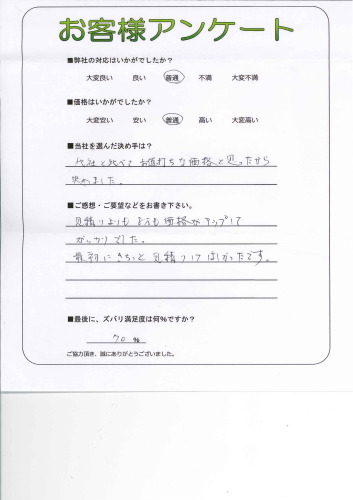 お客様アンケート
■弊社の対応はいかがでしたか?
大変良い 良い 普通 不満 大変不満
■価格はいかがでしたか?
大変安い 安い 普通 高い 大変高い
■当社を選んだ決め手は?
他社と比べて お値打ちな価格と思ったから
決めました。
■ご感想・ご要望などをお書き下さい。
見積りよりも 価格がアップして
がっかりでした。
最初にきちっと 見積りしてほしかったです。
■最後に、ズバリ満足度は何%ですか?
70 %
ご協力頂き、誠にありがとうございました。